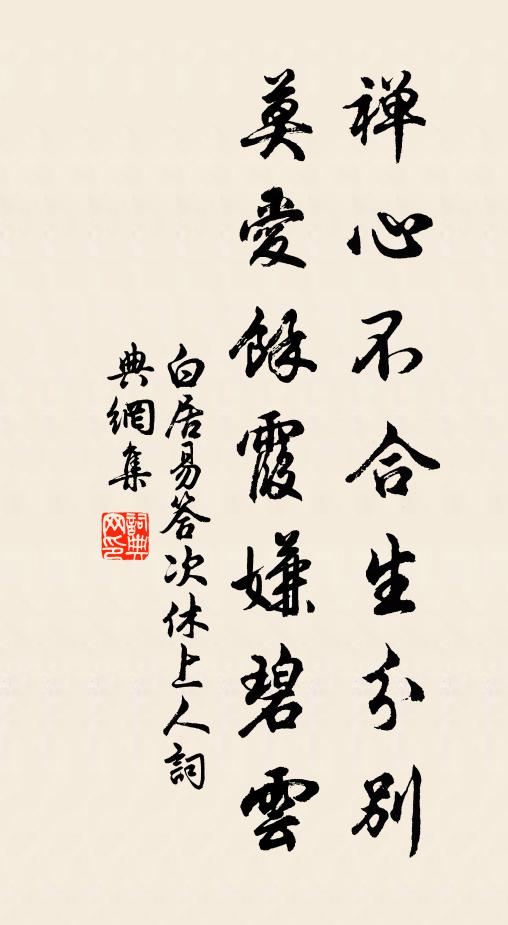 禅心不合生分別
莫愛餘霞嫌碧雲
白居易答次休上人詞
典網集
詞典
网印